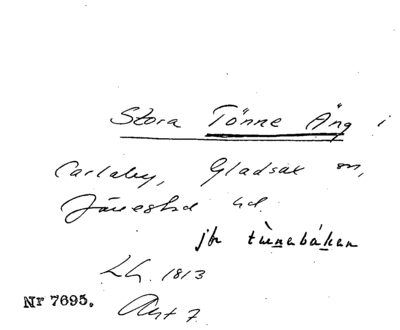 Stora Tönne Äng i
Carlaby, Gladsax sn,
Järrestad hd.
jfr tùnebákan
LG. 1813
Akt 7
Nr 7695.